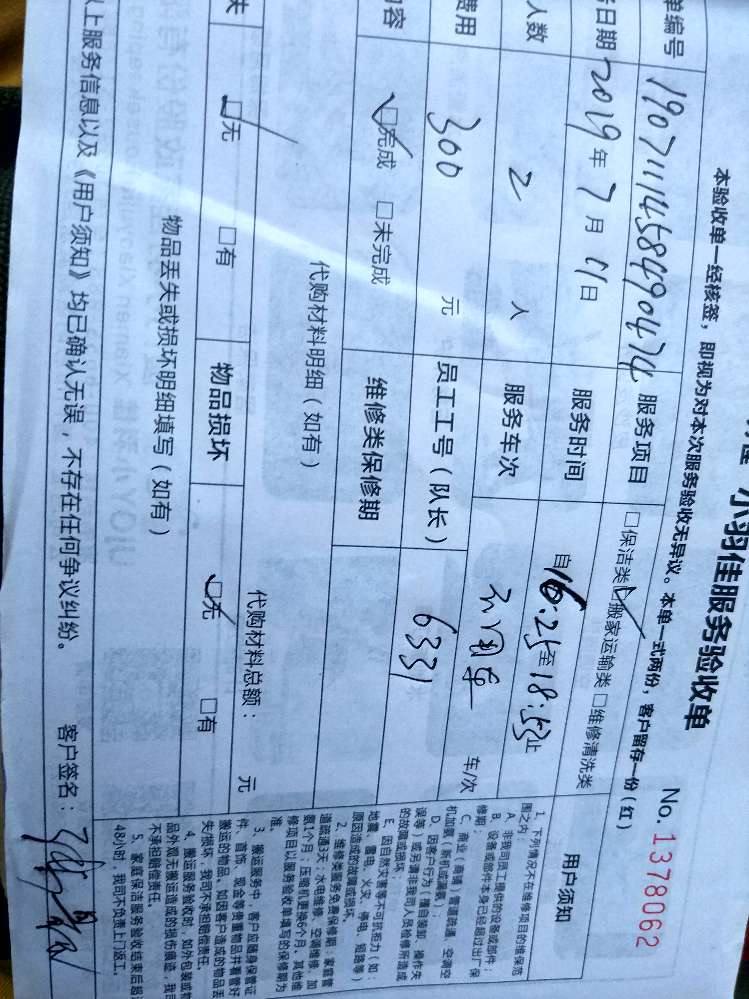 小羽佳服务验收单
No. 1378062
本验收单一经核签，即视为对本次服务验收无异议。本单一式两份，客户留存一份（红）
单编号 190711145849047 服务项目 □保洁类 ☑搬家运输类 □维修清洗类
日期 2019年7月11日 服务时间 自16:25至18:53止
人数 2人 服务车次 车/次
费用 300元 员工工号（队长） 6331
内容 ☑完成 □未完成 维修类保修期
代购材料明细（如有）
代购材料总额： 元
失 ☑无 □有 物品损坏 ☑无 □有
物品丢失或损坏明细填写（如有）
以上服务信息以及《用户须知》均已确认无误，不存在任何争议纠纷。 客户签名：
用户须知
1、下列情况不在维修项目的维保范
围之内：
A、非我司员工提供的设备或部件；
B、设备或部件本身已经超过出厂保
修期；
C、商业（商铺）管道疏通、空调空
机加氨（新机或漏氨）；
D、因客户行为（擅自装卸、操作失
误等）或另请非我司人员检修所造成
的故障或损坏；
E、因自然灾害等不可抗拒力（如：
地震、雷电、火灾、停电、短路等）
原因造成的故障或损坏。
2、维修类服务免费保修期：家庭管
道疏通3天；水电维修、空调维修、加
氨1个月；压缩机更换6个月。其他维
修项目以服务验收单填写的保修期为
准。
3、搬运服务中，客户应随身保管证
件、首饰、现金等贵重物品并看管好
搬运的物品。如因客户造成的物品丢
失/损坏，我司不承担赔偿责任。
4、搬运服务验收时，如外包装或物
品外观无搬运造成的损伤痕迹，我司
不承担赔偿责任。
5、家庭保洁服务验收结束后超过
48小时，我司不负责上门返工。